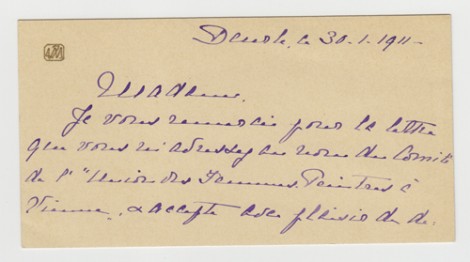 le 30.1.1911-
Madame.
Je vous remercie pour la lettre
que vous m'adressez au nom du Comité
de l'"Union des Femmes Peintres à
Vienne, & accepte avec plaisir de